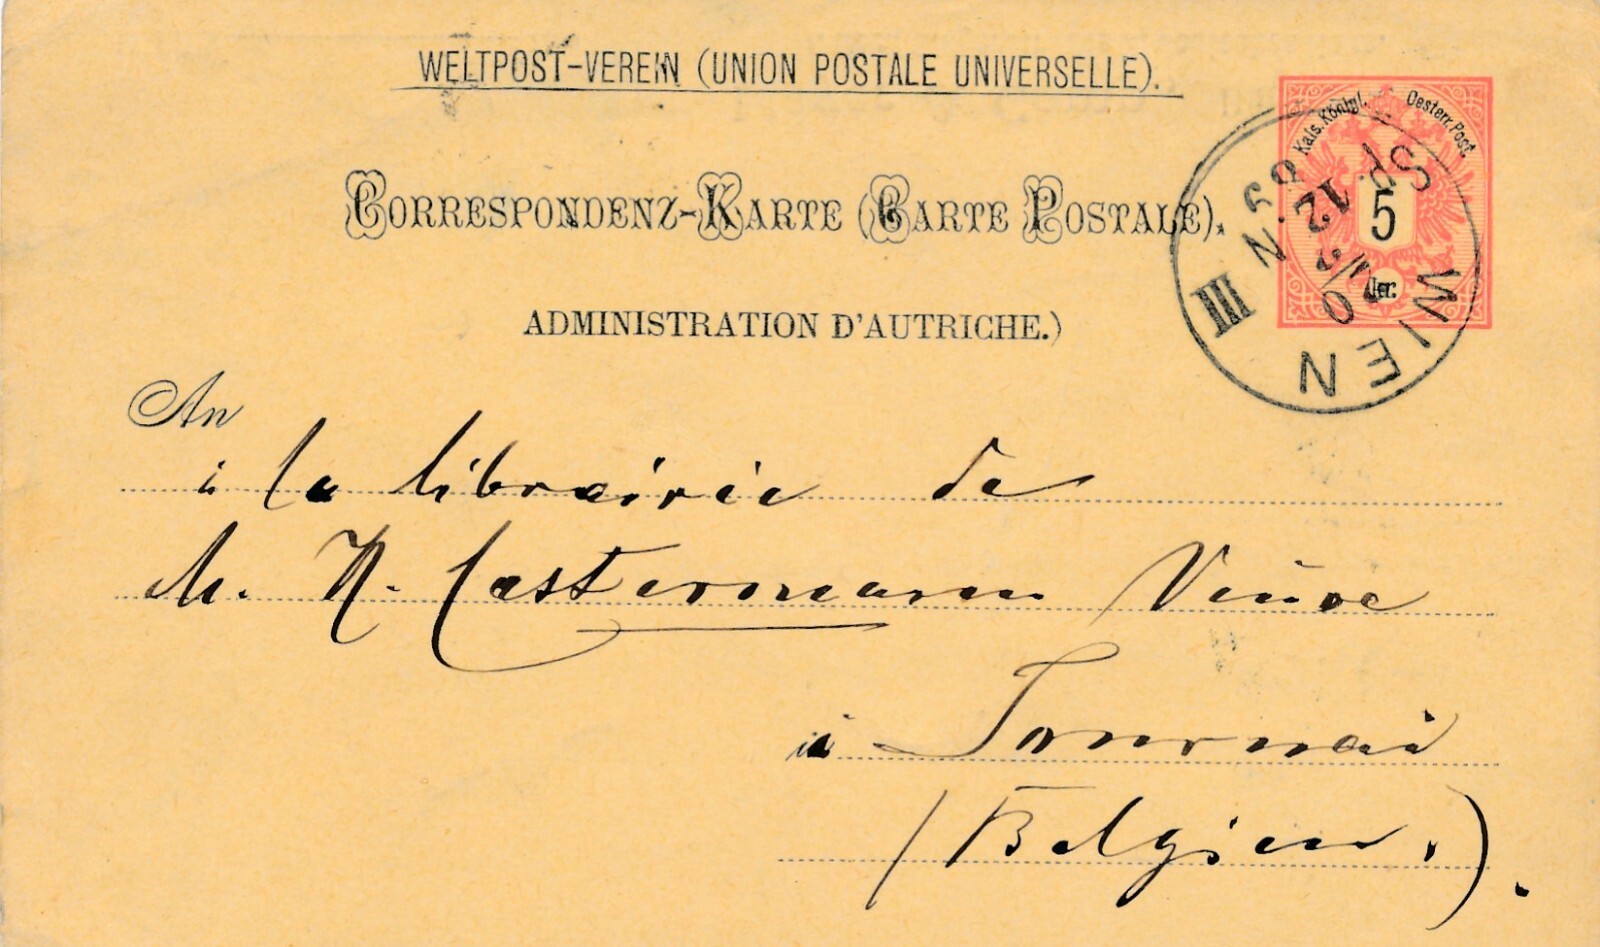 WELTPOST-VEREIN (UNION POSTALE UNIVERSELLE).
CORRESPONDENZ-KARTE (CARTE POSTALE).
ADMINISTRATION D'AUTRICHE.)
Kais. Königl. Oesterr. Post.
5
WIEN
III
An
à la librairie de
M. H. Castermann
à Tournai
(Belgien.).